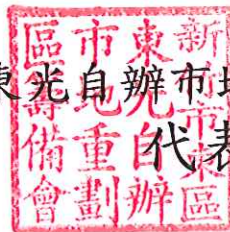 東光自辦市地
代表
新市東區
東光自辦
市地重劃
區籌備會